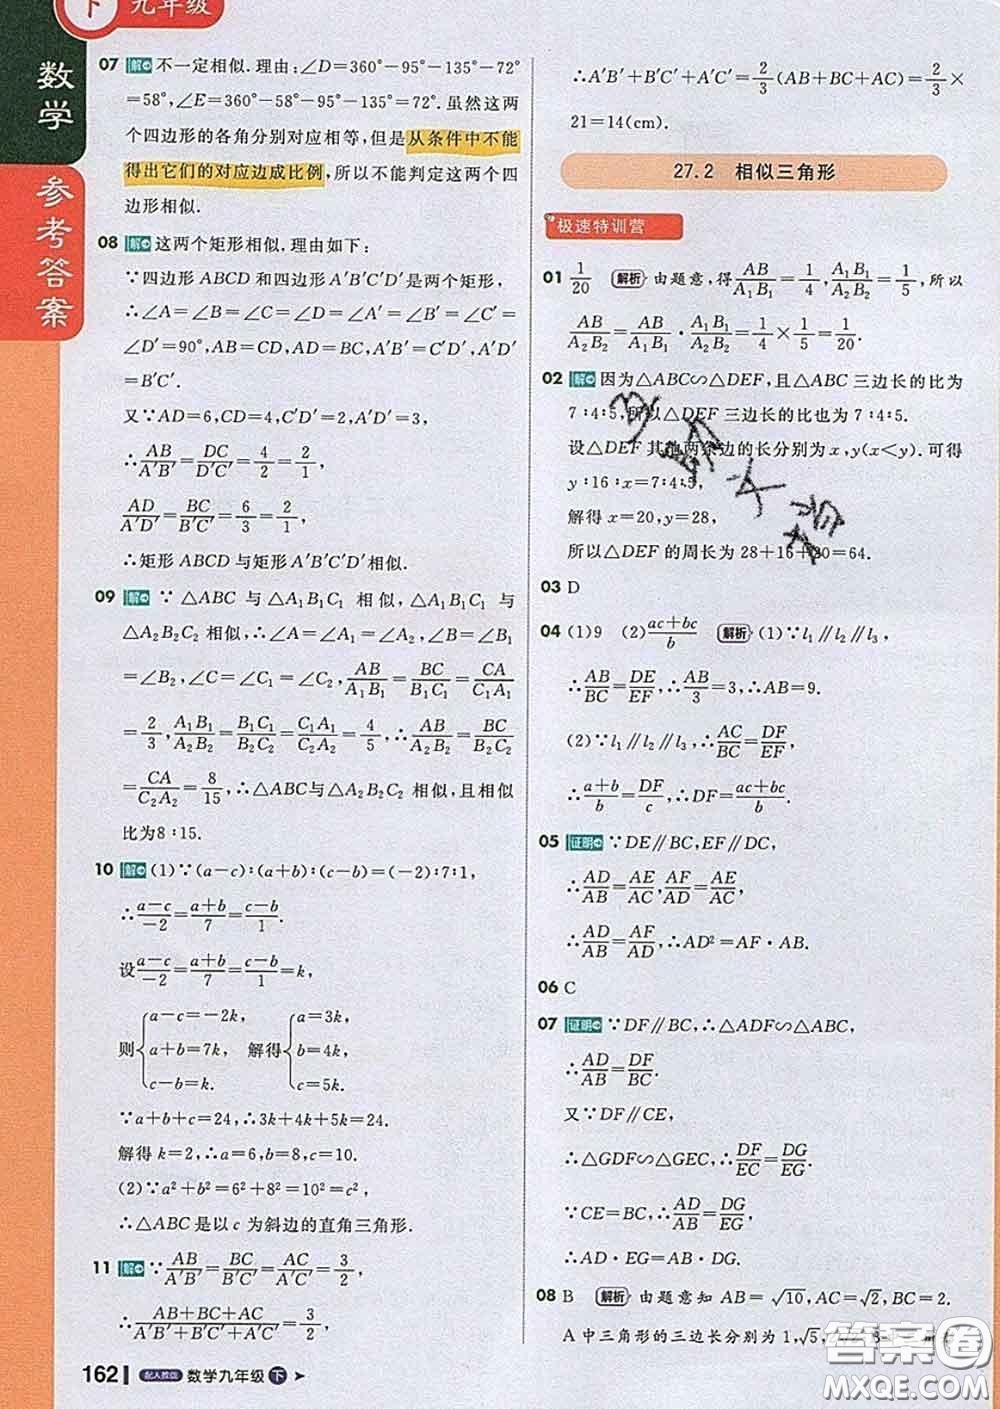 下 九年级
数学
参考答案
07 解 不一定相似.理由:∠D=360°-95°-135°-72°
=58°,∠E=360°-58°-95°-135°=72°.虽然这两
个四边形的各角分别对应相等,但是从条件中不能
得出它们的对应边成比例,所以不能判定这两个四
边形相似.
08 解 这两个矩形相似.理由如下:
∵四边形ABCD和四边形A′B′C′D′是两个矩形,
∴∠A=∠B=∠C=∠D=∠A′=∠B′=∠C′=
∠D′=90°,AB=CD,AD=BC,A′B′=C′D′,A′D′
=B′C′.
又∵AD=6,CD=4,C′D′=2,A′D′=3,
∴AB/A′B′=DC/D′C′=4/2=2/1,
AD/A′D′=BC/B′C′=6/3=2/1,
∴矩形ABCD与矩形A′B′C′D′相似.
09 解 ∵△ABC与△A₁B₁C₁相似,△A₁B₁C₁与
△A₂B₂C₂相似,∴∠A=∠A₁=∠A₂,∠B=∠B₁
=∠B₂,∠C=∠C₁=∠C₂,AB/A₁B₁=BC/B₁C₁=CA/C₁A₁
=2/3,A₁B₁/A₂B₂=B₁C₁/B₂C₂=C₁A₁/C₂A₂=4/5,∴AB/A₂B₂=BC/B₂C₂
=CA/C₂A₂=8/15,∴△ABC与△A₂B₂C₂相似,且相似
比为8∶15.
10 解 (1)∵(a-c)∶(a+b)∶(c-b)=(-2)∶7∶1,
∴(a-c)/-2=(a+b)/7=(c-b)/1.
设(a-c)/-2=(a+b)/7=(c-b)/1=k,
则{a-c=-2k, a+b=7k, c-b=k. 解得{a=3k, b=4k, c=5k.
∵a+b+c=24,∴3k+4k+5k=24,
解得k=2,∴a=6,b=8,c=10.
(2)∵a²+b²=6²+8²=10²=c²,
∴△ABC是以c为斜边的直角三角形.
11 解 ∵AB/A′B′=BC/B′C′=AC/A′C′=3/2,
∴(AB+BC+AC)/(A′B′+B′C′+A′C′)=3/2,
162 配人教版 数学九年级 下
∴A′B′+B′C′+A′C′=2/3(AB+BC+AC)=2/3×
21=14(cm).
27.2 相似三角形
极速特训营
01 1/20 解析 由题意,得AB/A₁B₁=1/4,A₁B₁/A₂B₂=1/5,所以
AB/A₂B₂=AB/A₁B₁·A₁B₁/A₂B₂=1/4×1/5=1/20.
02 解 因为△ABC∽△DEF,且△ABC三边长的比为
7∶4∶5,所以△DEF三边长的比也为7∶4∶5.
设△DEF其他两条边的长分别为x,y(x<y).可得
y∶16∶x=7∶4∶5,
解得x=20,y=28,
所以△DEF的周长为28+16+20=64.
03 D
04 (1)9 (2)(ac+bc)/b 解析 (1)∵l₁∥l₂∥l₃,
∴AB/BC=DE/EF,∴AB/3=3,∴AB=9.
(2)∵l₁∥l₂∥l₃,∴AC/BC=DF/EF,
∴(a+b)/b=DF/c,∴DF=(ac+bc)/b.
05 证明 ∵DE∥BC,EF∥DC,
∴AD/AB=AE/AC,AF/AD=AE/AC,
∴AD/AB=AF/AD,∴AD²=AF·AB.
06 C
07 证明 ∵DF∥BC,∴△ADF∽△ABC,
∴AD/AB=DF/BC.
又∵DF∥CE,
∴△GDF∽△GEC,∴DF/EC=DG/EG.
∵CE=BC,∴AD/AB=DG/EG,
∴AD·EG=AB·DG.
08 B 解析 由题意知AB=√10,AC=√2,BC=2.
A中三角形的三边长分别为1,√5,
答案圈
MXQE.COM